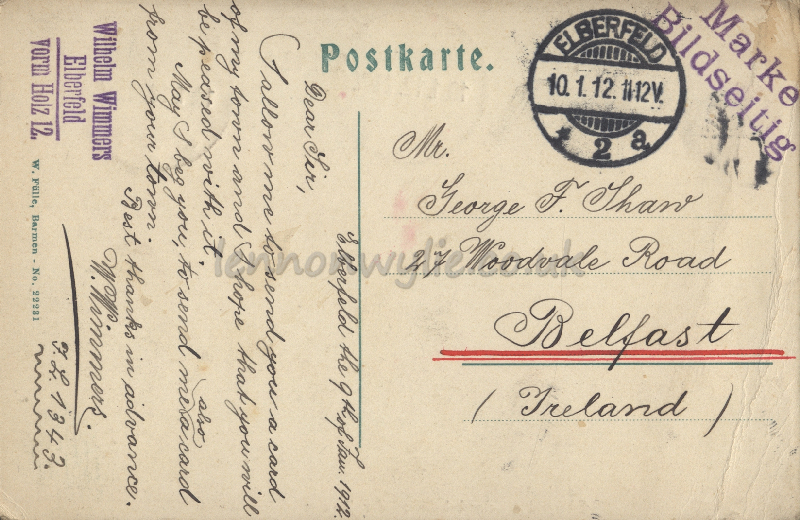 Postkarte.
Marke
Bildseitig
ELBERFELD
10.1.12.11-12V.
* 2 a
Mr.
George F. Shaw
27 Woodvale Road
Belfast
(Ireland)
Elberfeld the 9th of Jan. 1912
Dear Sir,
I allow me to send you a card
of my town and I hope that you will
be pleased with it.
May I beg you, to send me also a card
from your town.
Best thanks in advance.
W. Wimmers.
F. L. 1343.
Wilhelm Wimmers
Elberfeld
vorm Holz 12.
W. Fülle, Barmen - No. 22231
lennonwylie.co.uk